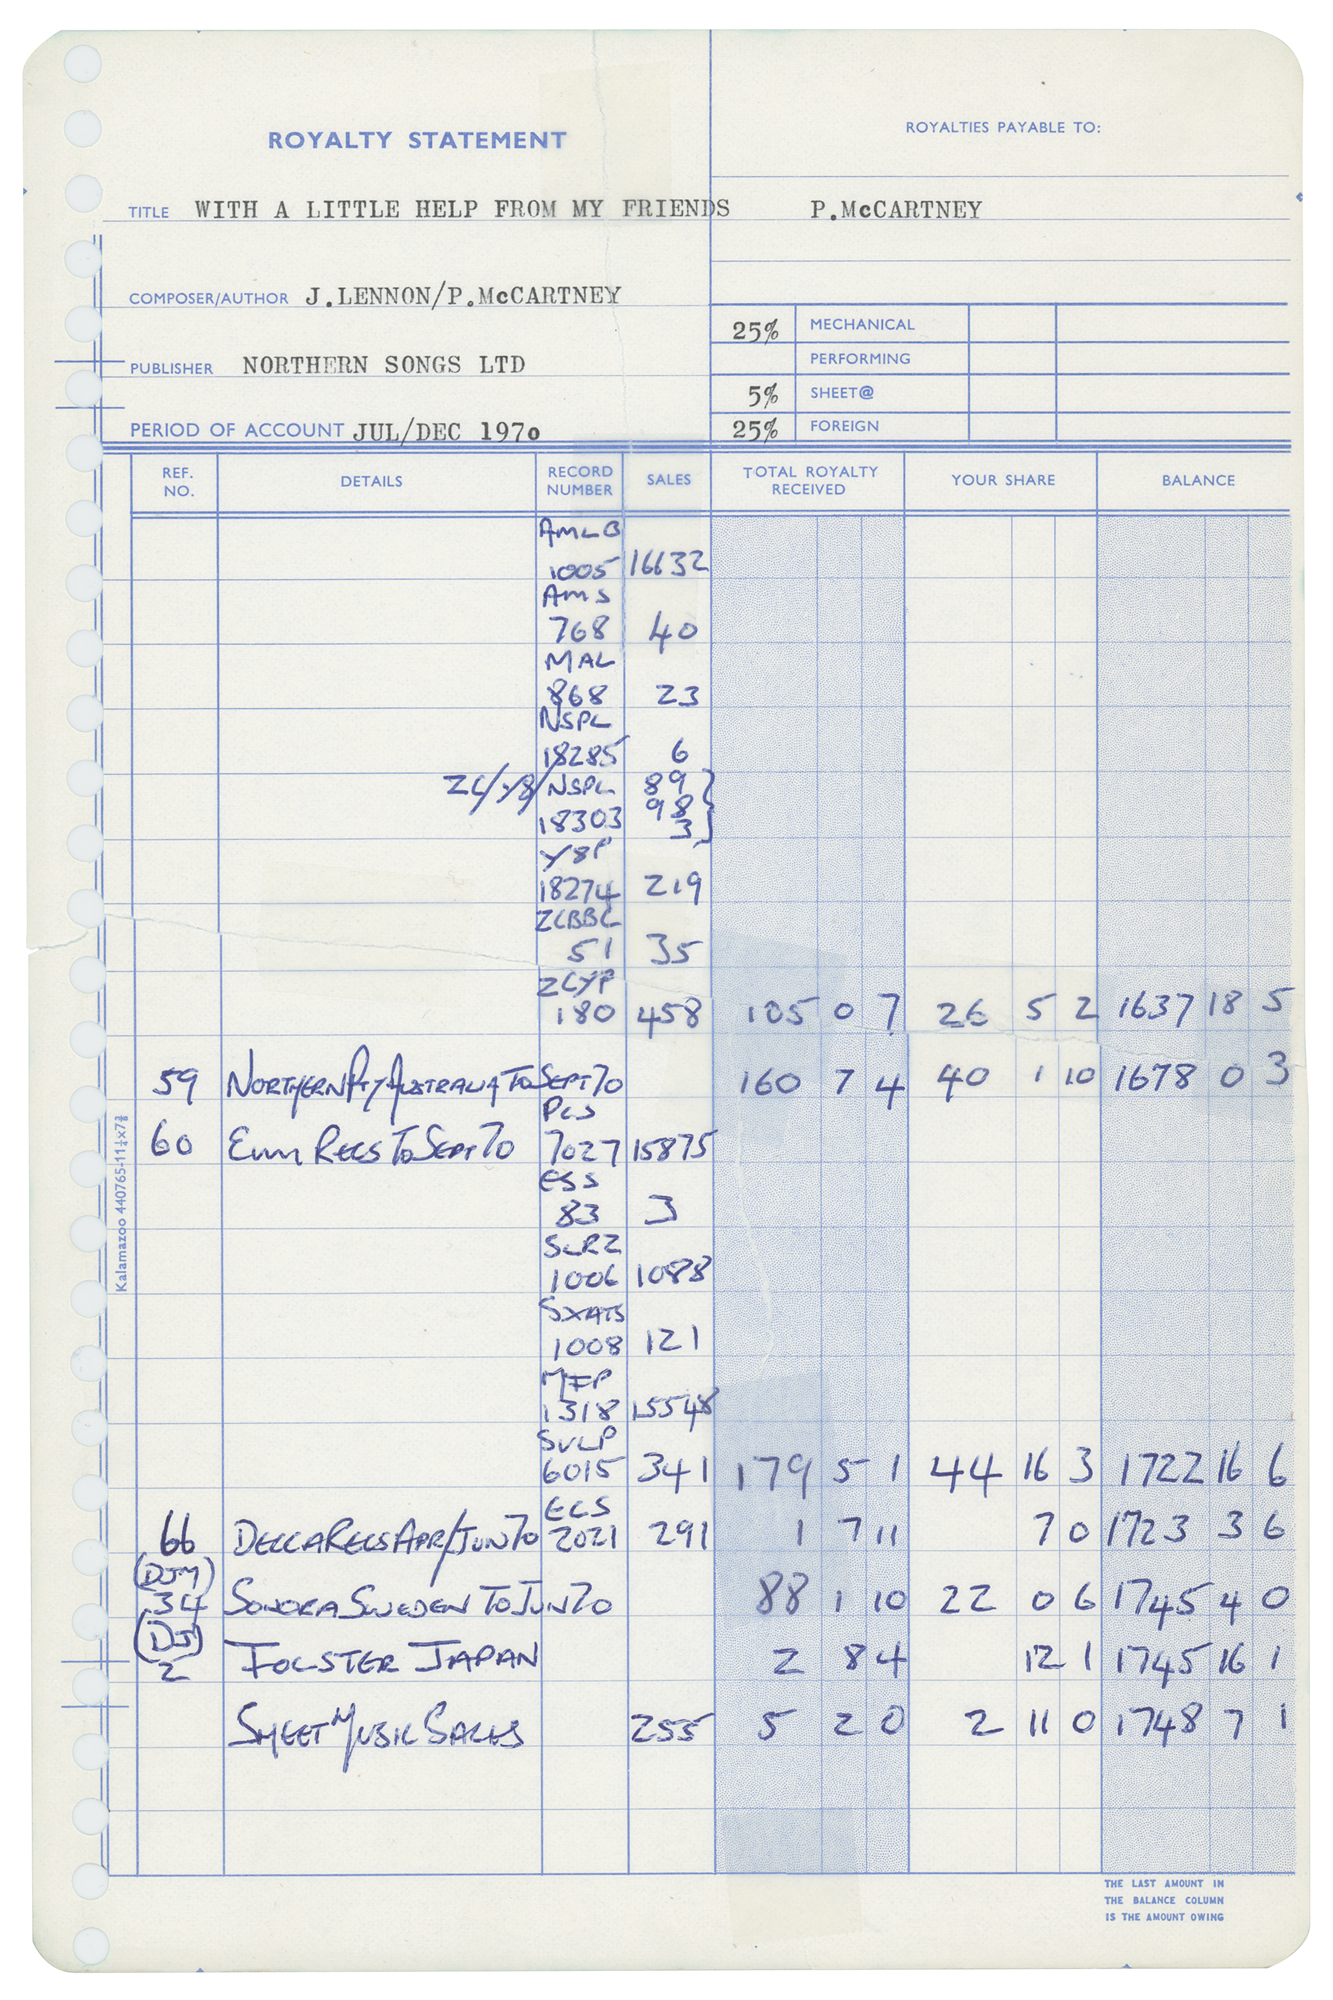 ROYALTY STATEMENT
ROYALTIES PAYABLE TO:
TITLE WITH A LITTLE HELP FROM MY FRIENDS P.McCARTNEY
COMPOSER/AUTHOR J.LENNON/P.McCARTNEY
25% MECHANICAL
PERFORMING
PUBLISHER NORTHERN SONGS LTD
5% SHEET@
PERIOD OF ACCOUNT JUL/DEC 1970
25% FOREIGN
REF. NO. DETAILS RECORD NUMBER SALES TOTAL ROYALTY RECEIVED YOUR SHARE BALANCE
AMLB
1005 16632
AMS
768 40
MAL
868 23
NSPL
18285 6
ZC/Y8/NSPL 89
98
18303 3
Y8P
18274 219
ZCBBC
51 35
ZCYP
180 458 105 0 7 26 5 2 1637 18 5
59 NORTHERN PTY AUSTRALIA TO SEPT 70 160 7 4 40 1 10 1678 0 3
PCS
60 EMI RECS TO SEPT 70 7027 15875
ESS
83 3
SLRZ
1006 1088
SXATS
1008 121
MFP
1318 15548
SVLP
6015 341 179 5 1 44 16 3 1722 16 6
ECS
66 DECCA RECS APR/JUN 70 2021 291 1 7 11 7 0 1723 3 6
(DJM)
34 SONORA SWEDEN TO JUN 70 88 1 10 22 0 6 1745 4 0
(DJ)
2 FOLSTER JAPAN 2 8 4 12 1 1745 16 1
SHEET MUSIC SALES 255 5 2 0 2 11 0 1748 7 1
THE LAST AMOUNT IN
THE BALANCE COLUMN
IS THE AMOUNT OWING
Kalamazoo 440765-11¼x7⅞